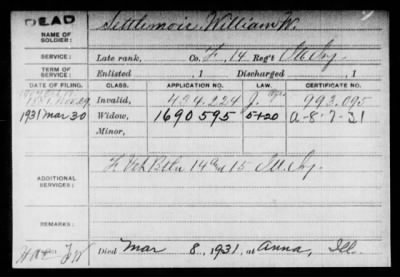 DEAD
NAME OF SOLDIER: Settlemoir, William W.
SERVICE: Late rank, Co. F, 14 Reg't Ill. Inf.
TERM OF SERVICE: Enlisted , 1 Discharged , 1
DATE OF FILING. CLASS. APPLICATION NO. LAW. CERTIFICATE NO.
Invalid, 494.224 J. 993.095
1931 Mar 30 Widow, 1690595 5+20 A-8-7-31
Minor,
ADDITIONAL SERVICES: F Vet Batln 14 and 15 Ill. Inf.
REMARKS:
Died Mar 8, 1931, at Anna, Ill.